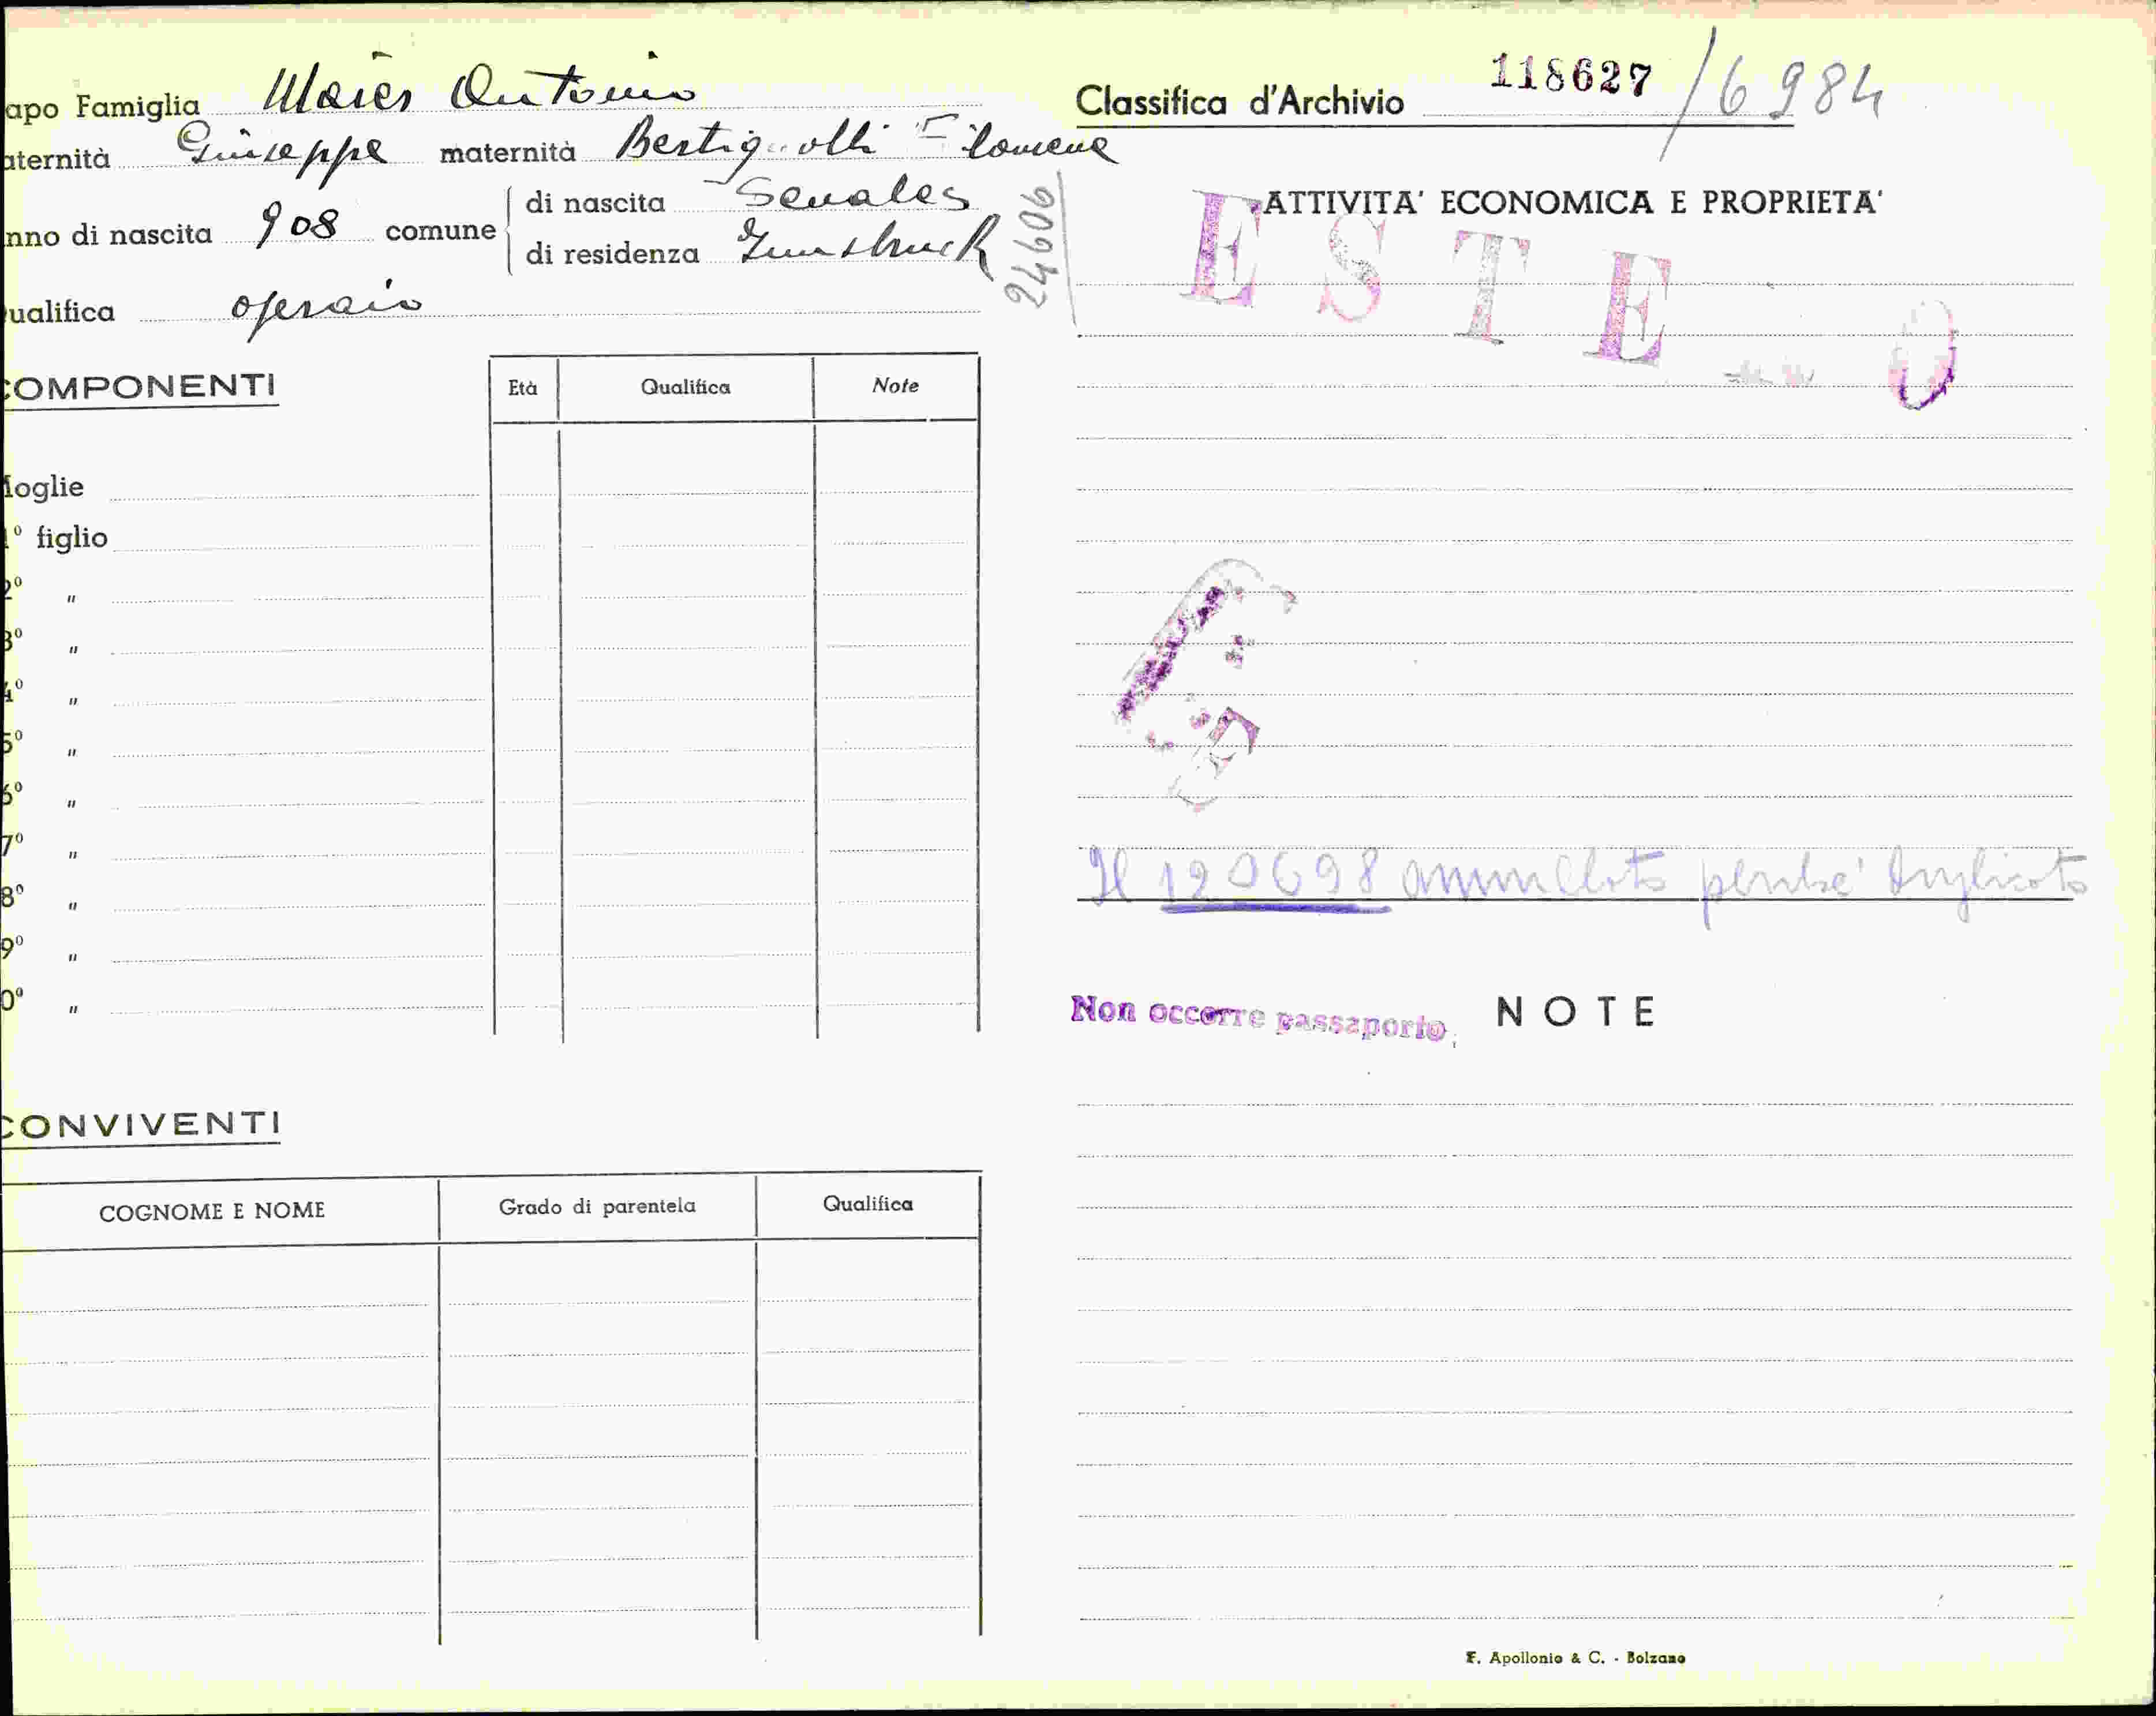 apo Famiglia Maier Antonio
aternità Giuseppe maternità Filomena
nno di nascita 908 comune
di nascita Senales
di residenza Innsbruck
24606
ualifica operaio
COMPONENTI
Età Qualifica Note
oglie
1° figlio
2° "
3° "
4° "
5° "
6° "
7° "
8° "
9° "
0° "
CONVIVENTI
COGNOME E NOME Grado di parentela Qualifica
Classifica d'Archivio 118627 /6984
ATTIVITA' ECONOMICA E PROPRIETA'
ESTE O
Il 120698 annullato perché duplicato
Non occorre passaporto.
NOTE
F. Apollonio & C. - Bolzano